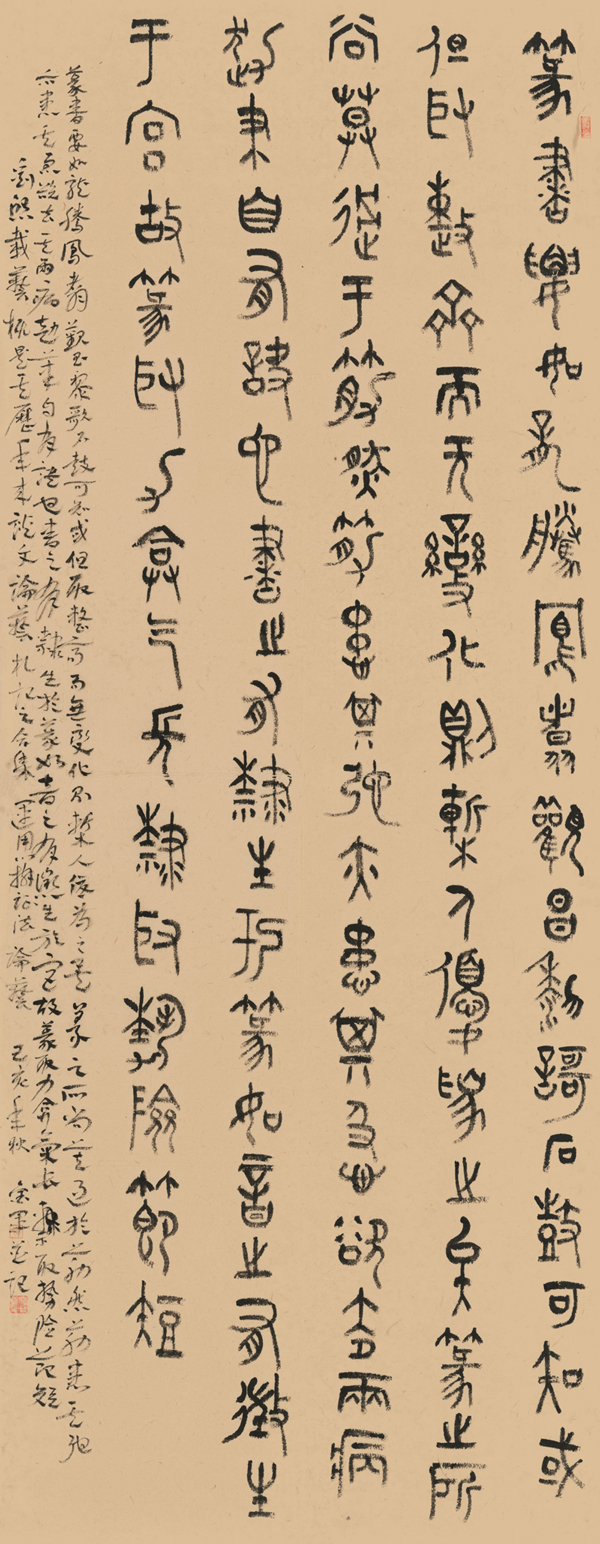 篆書要如龍騰鳳翥觀昌黎歌石鼓可知或
但取整齊而无變化則槧人優爲之矣篆之所
尚莫過于筋然筋患其弛亦患其急欲去兩病
趲筆自有訣也書之有隸生於篆如音之有徵生
于宮故篆取力弇气長隸取勢險節短
篆書要如龍騰鳳翥觀昌黎歌石鼓可知或但取整齊而無變化則槧人優爲之矣篆之所尚莫過於筋然筋患其弛
亦患其急欲去其兩病趲筆自有訣也書之有隸生於篆如音之有徵生於宮故篆取力弇氣長隸取勢險節短
劉熙載藝概是其歷年來談文論藝札記之合集運用辯証法論藝 己亥年秋 軍並記